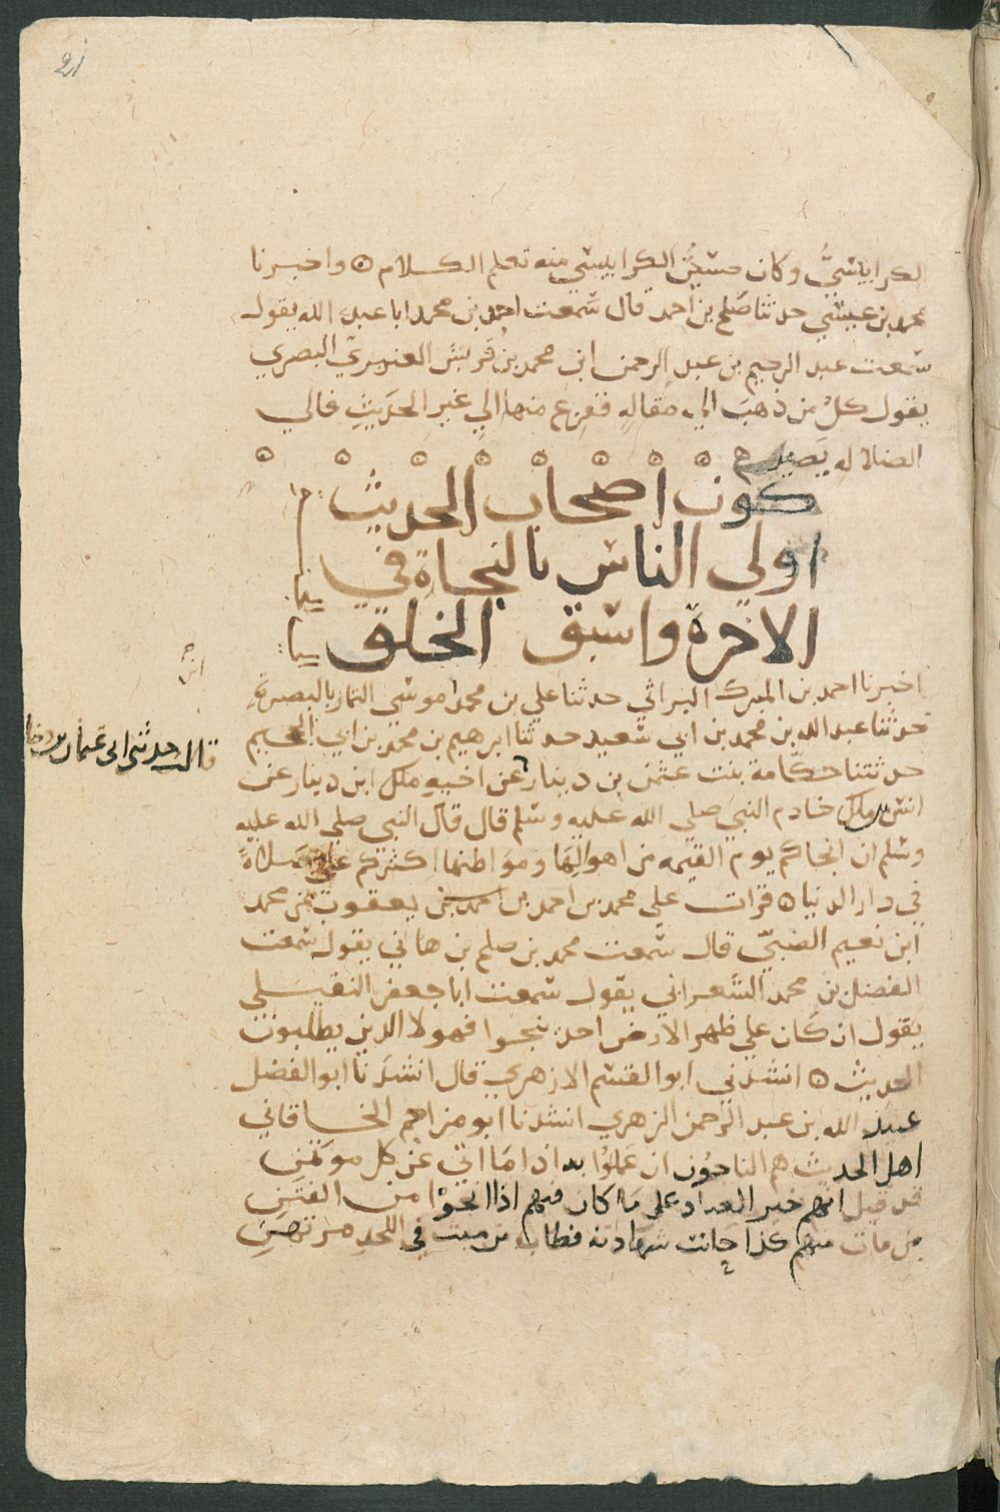 الكرابيسيُّ وكان حسين الكرابيسي منه تعلم الكلام ۞ واخبرنا
محمد بن عيسي حدثنا صلح بن احمد قال سمعت احمد بن محمد ابا عبد الله يقول
سمعت عبد الرحيم بن عبد الرحمن ابن محمد بن قريش العنبري البصري
يقول كل من ذهب الي مقاله ففزع منها الي غير الحديث فالي
الضلاله يصير
كون اصحاب الحديث
اولي الناس بالنجاة في
الاخرة واسبق الخلق
اخبرنا احمد بن المبرك البراثي حدثنا علي بن محمد موسي التمار بالبصرة
حدثنا عبد الله بن محمد بن ابي سعيد حدثنا ابرهيم بن محمد بن ابي الجحيم
حدثتنا حكامة بنت عثمن بن دينار عن اخيه ملك ابن دينار عن
قالت حدثني ابي عثمان بن دينار
انس بن ملك خادم النبي صلي الله عليه وسلم قال قال النبي صلي الله عليه
وسلم ان انجاكم يوم القيمه من اهوالها ومواطنها اكثركم علي صلاة
في دار الدنيا ۞ قرات علي محمد بن احمد بن يعقوب عن محمد
ابن نعيم الضبي قال سمعت محمد بن صلح بن هاني يقول سمعت
الفضل بن محمد الشعراني يقول سمعت ابا جعفر النفيلي
يقول ان كان علي ظهر الارض احد ينجوا فهولا الذين يطلبون
الحديث ۞ انشدني ابو القسم الازهري قال انشدنا ابو الفضل
عبيد الله بن عبد الرحمن الزهري انشدنا ابو مزاحم الخاقاني
اهل الحديث هم الناجون ان عملوا به اذا ما اتي عن كل موتمن
قد قيل انهم خير العباد علي ما كان فيهم اذا انجوا من الفتن
من مات منهم كذا حانت شهادته فطاب من ميت في اللحد مرتهن